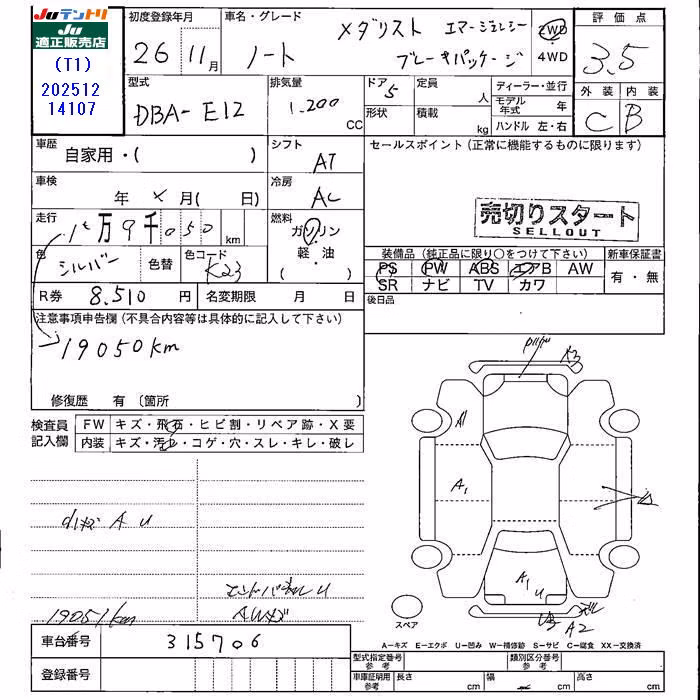 Juテントリ
Ju
適正販売店
(T1)
202512
14107
初度登録年月
26 11月
車名・グレード
ノート メダリスト エマージェンシー
ブレーキパッケージ
2WD
4WD
評価点
3.5
外装 内装
C B
型式
DBA-E12
排気量
1.200 CC
ドア 5
形状
定員 人
積載 kg
ディーラー・並行
モデル年式 年
ハンドル 左・右
車歴
自家用・( )
シフト
AT
セールスポイント(正常に機能するものに限ります)
車検
年 × 月( 日)
冷房
AC
売切りスタート
SELLOUT
走行
1万9千050 km
燃料
ガソリン
軽・油
( )
色
シルバー
色替
色コード
K23
装備品(純正品に限り○をつけて下さい)
新車保証書
PS PW ABS エアB AW
SR ナビ TV カワ
有・無
R券 8.510 円
名変期限 月 日
後日品
注意事項申告欄(不具合内容等は具体的に記入して下さい)
19050km
修復歴 有 (箇所 )
検査員
記入欄
FW キズ・飛石・ヒビ割・リペア跡・X要
内装 キズ・汚れ・コゲ・穴・スレ・キレ・破レ
A1
A1
A1 U
A2
小キズ A U
エンドパネルU
AWキズ
19051km
スペア
A-キズ E-エクボ U-凹み W-補修跡 S-サビ C-腐食 XX-交換済
車台番号 315706
登録番号
型式指定番号
参考
類別区分番号
参考
車庫証明用
参考
長さ cm
幅 cm
高さ cm